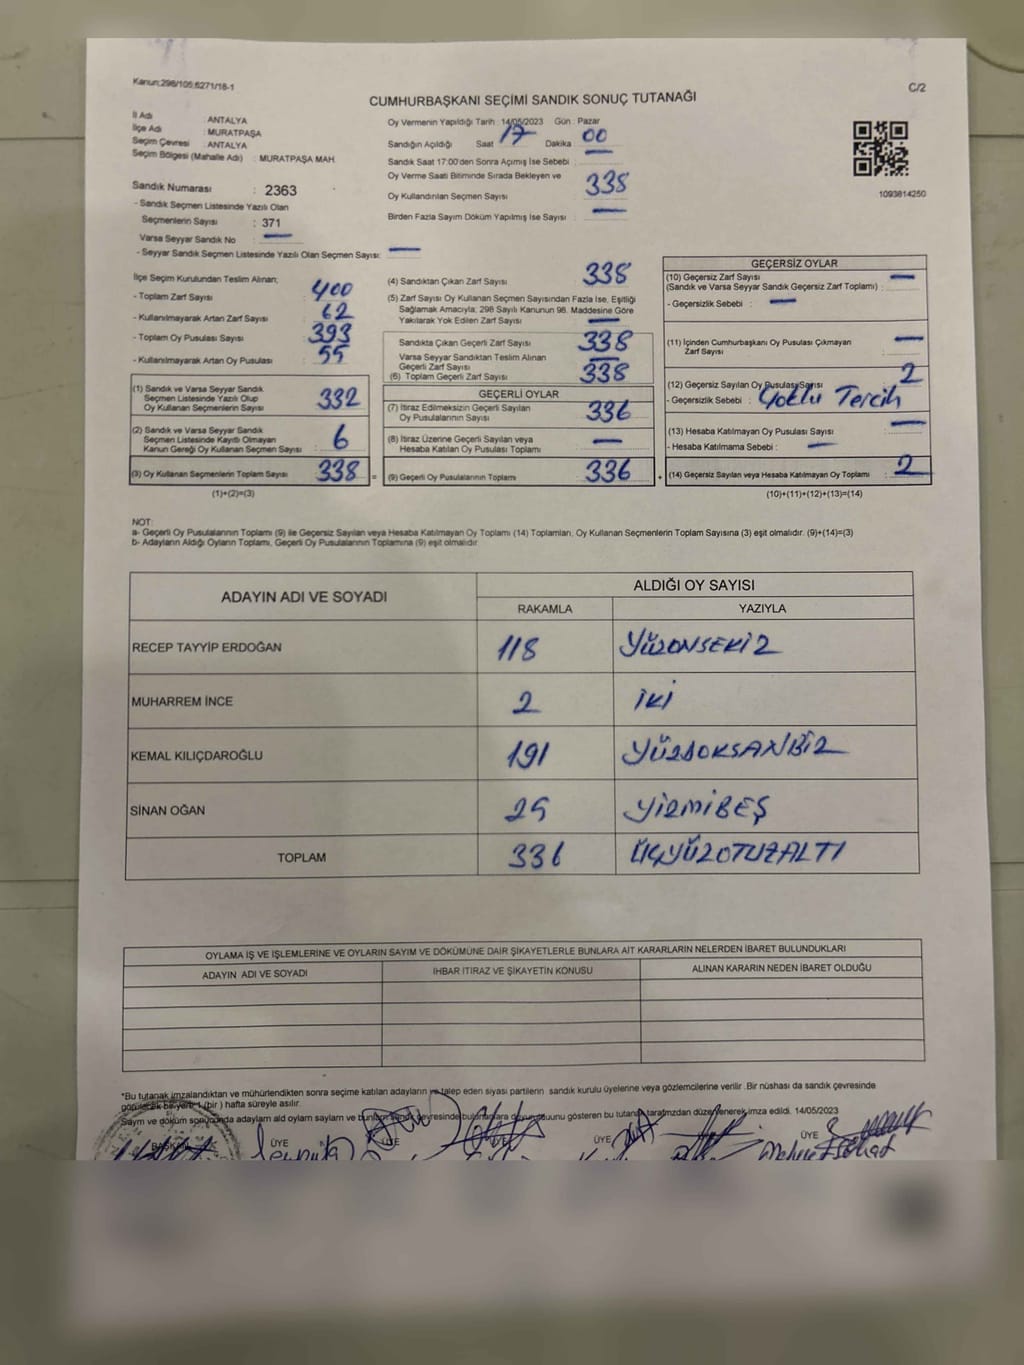 Kanun;298/105;6271/18-1
C/2
CUMHURBAŞKANI SEÇİMİ SANDIK SONUÇ TUTANAĞI
İl Adı : ANTALYA
İlçe Adı : MURATPAŞA
Seçim Çevresi : ANTALYA
Seçim Bölgesi (Mahalle Adı) : MURATPAŞA MAH.
Sandık Numarası : 2363
- Sandık Seçmen Listesinde Yazılı Olan
Seçmenlerin Sayısı : 371
Varsa Seyyar Sandık No —
- Seyyar Sandık Seçmen Listesinde Yazılı Olan Seçmen Sayısı: —
Oy Vermenin Yapıldığı Tarih : 14/05/2023 Gün : Pazar
Sandığın Açıldığı Saat 17 Dakika 00
Sandık Saat 17:00'den Sonra Açımış İse Sebebi : —
Oy Verme Saati Bitiminde Sırada Bekleyen ve
Oy Kullandırılan Seçmen Sayısı 338
Birden Fazla Sayım Döküm Yapılmış İse Sayısı : —
1093814250
İlçe Seçim Kurulundan Teslim Alınan;
- Toplam Zarf Sayısı 400
- Kullanılmayarak Artan Zarf Sayısı : 62
- Toplam Oy Pusulası Sayısı : 393
- Kullanılmayarak Artan Oy Pusulası : 55
(1) Sandık ve Varsa Seyyar Sandık
Seçmen Listesinde Yazılı Olup
Oy Kullanan Seçmenlerin Sayısı 332
(2) Sandık ve Varsa Seyyar Sandık
Seçmen Listesinde Kayıtlı Olmayan
Kanun Gereği Oy Kullanan Seçmen Sayısı : 6
(3) Oy Kullanan Seçmenlerin Toplam Sayısı 338 =
(1)+(2)=(3)
(4) Sandıktan Çıkan Zarf Sayısı : 338
(5) Zarf Sayısı Oy Kullanan Seçmen Sayısından Fazla İse, Eşitliği
Sağlamak Amacıyla; 298 Sayılı Kanunun 98. Maddesine Göre
Yakılarak Yok Edilen Zarf Sayısı : —
Sandıkta Çıkan Geçerli Zarf Sayısı : 338
Varsa Seyyar Sandıktan Teslim Alınan
Geçerli Zarf Sayısı : —
(6) Toplam Geçerli Zarf Sayısı : 338
GEÇERLİ OYLAR
(7) İtiraz Edilmeksizin Geçerli Sayılan
Oy Pusulalarının Sayısı : 336
(8) İtiraz Üzerine Geçerli Sayılan veya
Hesaba Katılan Oy Pusulası Toplamı : —
(9) Geçerli Oy Pusulalarının Toplamı : 336 +
GEÇERSİZ OYLAR
(10) Geçersiz Zarf Sayısı —
(Sandık ve Varsa Seyyar Sandık Geçersiz Zarf Toplamı) :
- Geçersizlik Sebebi : —
(11) İçinden Cumhurbaşkanı Oy Pusulası Çıkmayan
Zarf Sayısı : —
(12) Geçersiz Sayılan Oy Pusulası Sayısı 2
- Geçersizlik Sebebi : Çoklu Tercih
(13) Hesaba Katılmayan Oy Pusulası Sayısı : —
- Hesaba Katılmama Sebebi : —
(14) Geçersiz Sayılan veya Hesaba Katılmayan Oy Toplamı : 2
(10)+(11)+(12)+(13)=(14)
NOT:
a- Geçerli Oy Pusulalarının Toplamı (9) ile Geçersiz Sayılan veya Hesaba Katılmayan Oy Toplamı (14) Toplamları, Oy Kullanan Seçmenlerin Toplam Sayısına (3) eşit olmalıdır. (9)+(14)=(3)
b- Adayların Aldığı Oyların Toplamı, Geçerli Oy Pusulalarının Toplamına (9) eşit olmalıdır
ADAYIN ADI VE SOYADI
ALDIĞI OY SAYISI
RAKAMLA YAZIYLA
RECEP TAYYİP ERDOĞAN 118 YÜZONSEKİZ
MUHARREM İNCE 2 İKİ
KEMAL KILIÇDAROĞLU 191 YÜZDOKSANBİR
SİNAN OĞAN 25 YİRMİBEŞ
TOPLAM 336 ÜÇYÜZOTUZALTI
OYLAMA İŞ VE İŞLEMLERİNE VE OYLARIN SAYIM VE DÖKÜMÜNE DAİR ŞİKAYETLERLE BUNLARA AİT KARARLARIN NELERDEN İBARET BULUNDUKLARI
ADAYIN ADI VE SOYADI İHBAR İTİRAZ VE ŞİKAYETİN KONUSU ALINAN KARARIN NEDEN İBARET OLDUĞU
*Bu tutanak imzalandıktan ve mühürlendikten sonra seçime katılan adayların ve talep eden siyasi partilerin sandık kurulu üyelerine veya gözlemcilerine verilir. Bir nüshası da sandık çevresinde
görülecek bir yere 1 (bir) hafta süreyle asılır.
Sayım ve döküm sonucunda adayların aldı oyların sayılarını ve sandık çevresinde sonucunu gösteren bu tutanak tarafımızdan düzenlenerek imza edildi. 14/05/2023
BAŞKAN ÜYE ÜYE ÜYE ÜYE